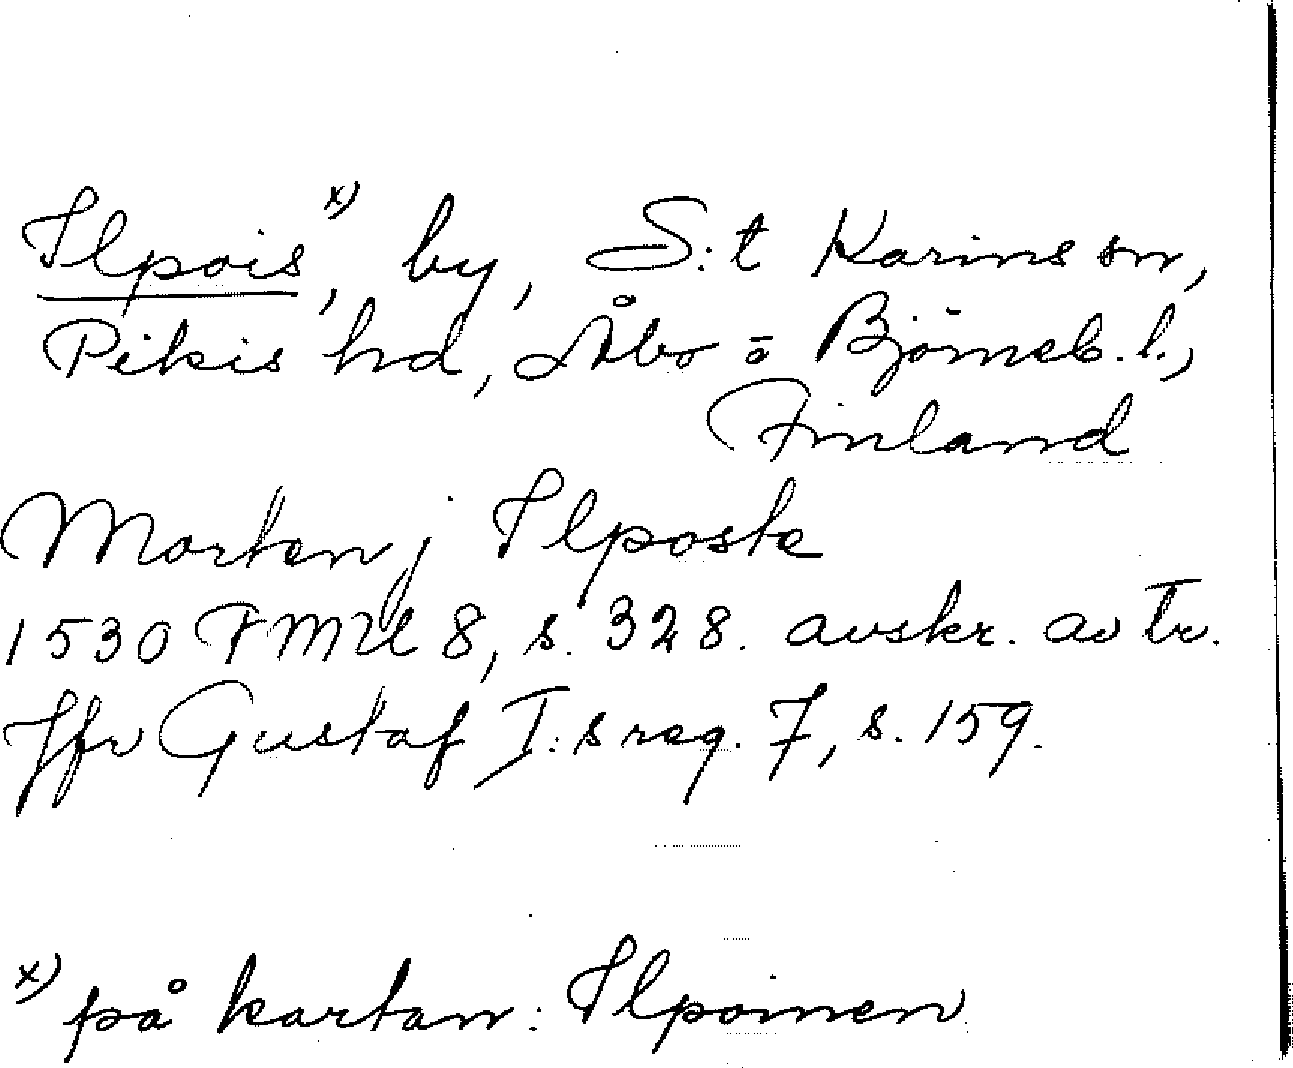 Ilpois x), by, S:t Karins sn,
Pikis hd, Åbo o Björneb. l.,
Finland
Morten j Ilposte
1530 FMU 8, s. 328. avskr. av Tr.
Jfr Gustaf I:s reg. 7, s. 159.
x) på kartan: Ilpoinen